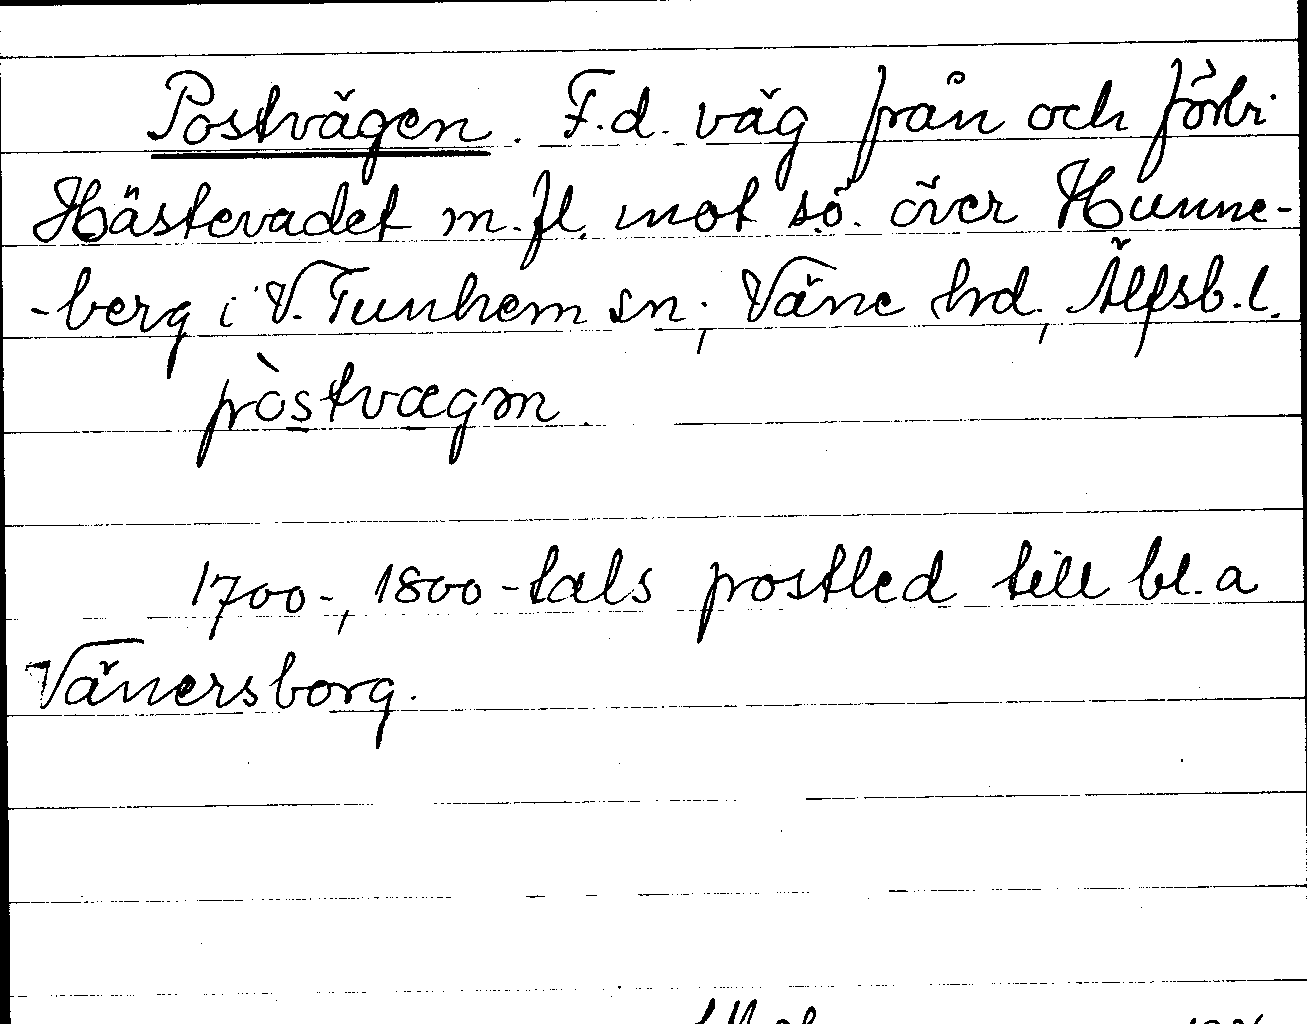 Postvägen. F.d. väg från och förbi
Hästevadet m.fl. mot s.ö. över Hunne-
-berg i V. Tunhem sn, Väne hd, Älfsb.l.
pòstvægm.
1700-, 1800-tals postled till bl.a
Vänersborg.